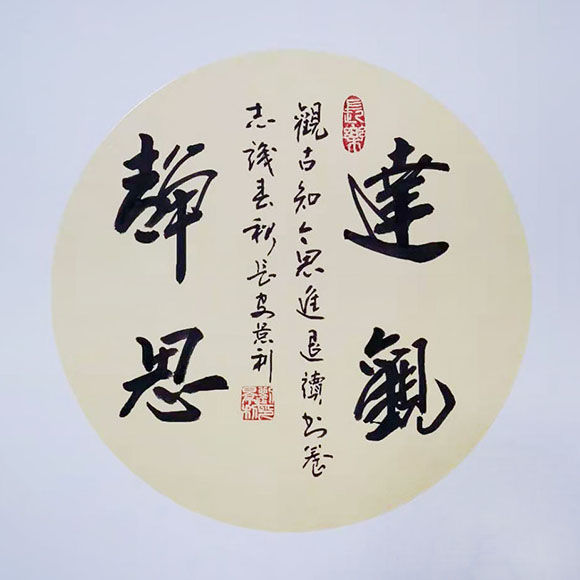 長樂
達觀
觀古知今思進退讀書養
志識春秋長安景利
靜思